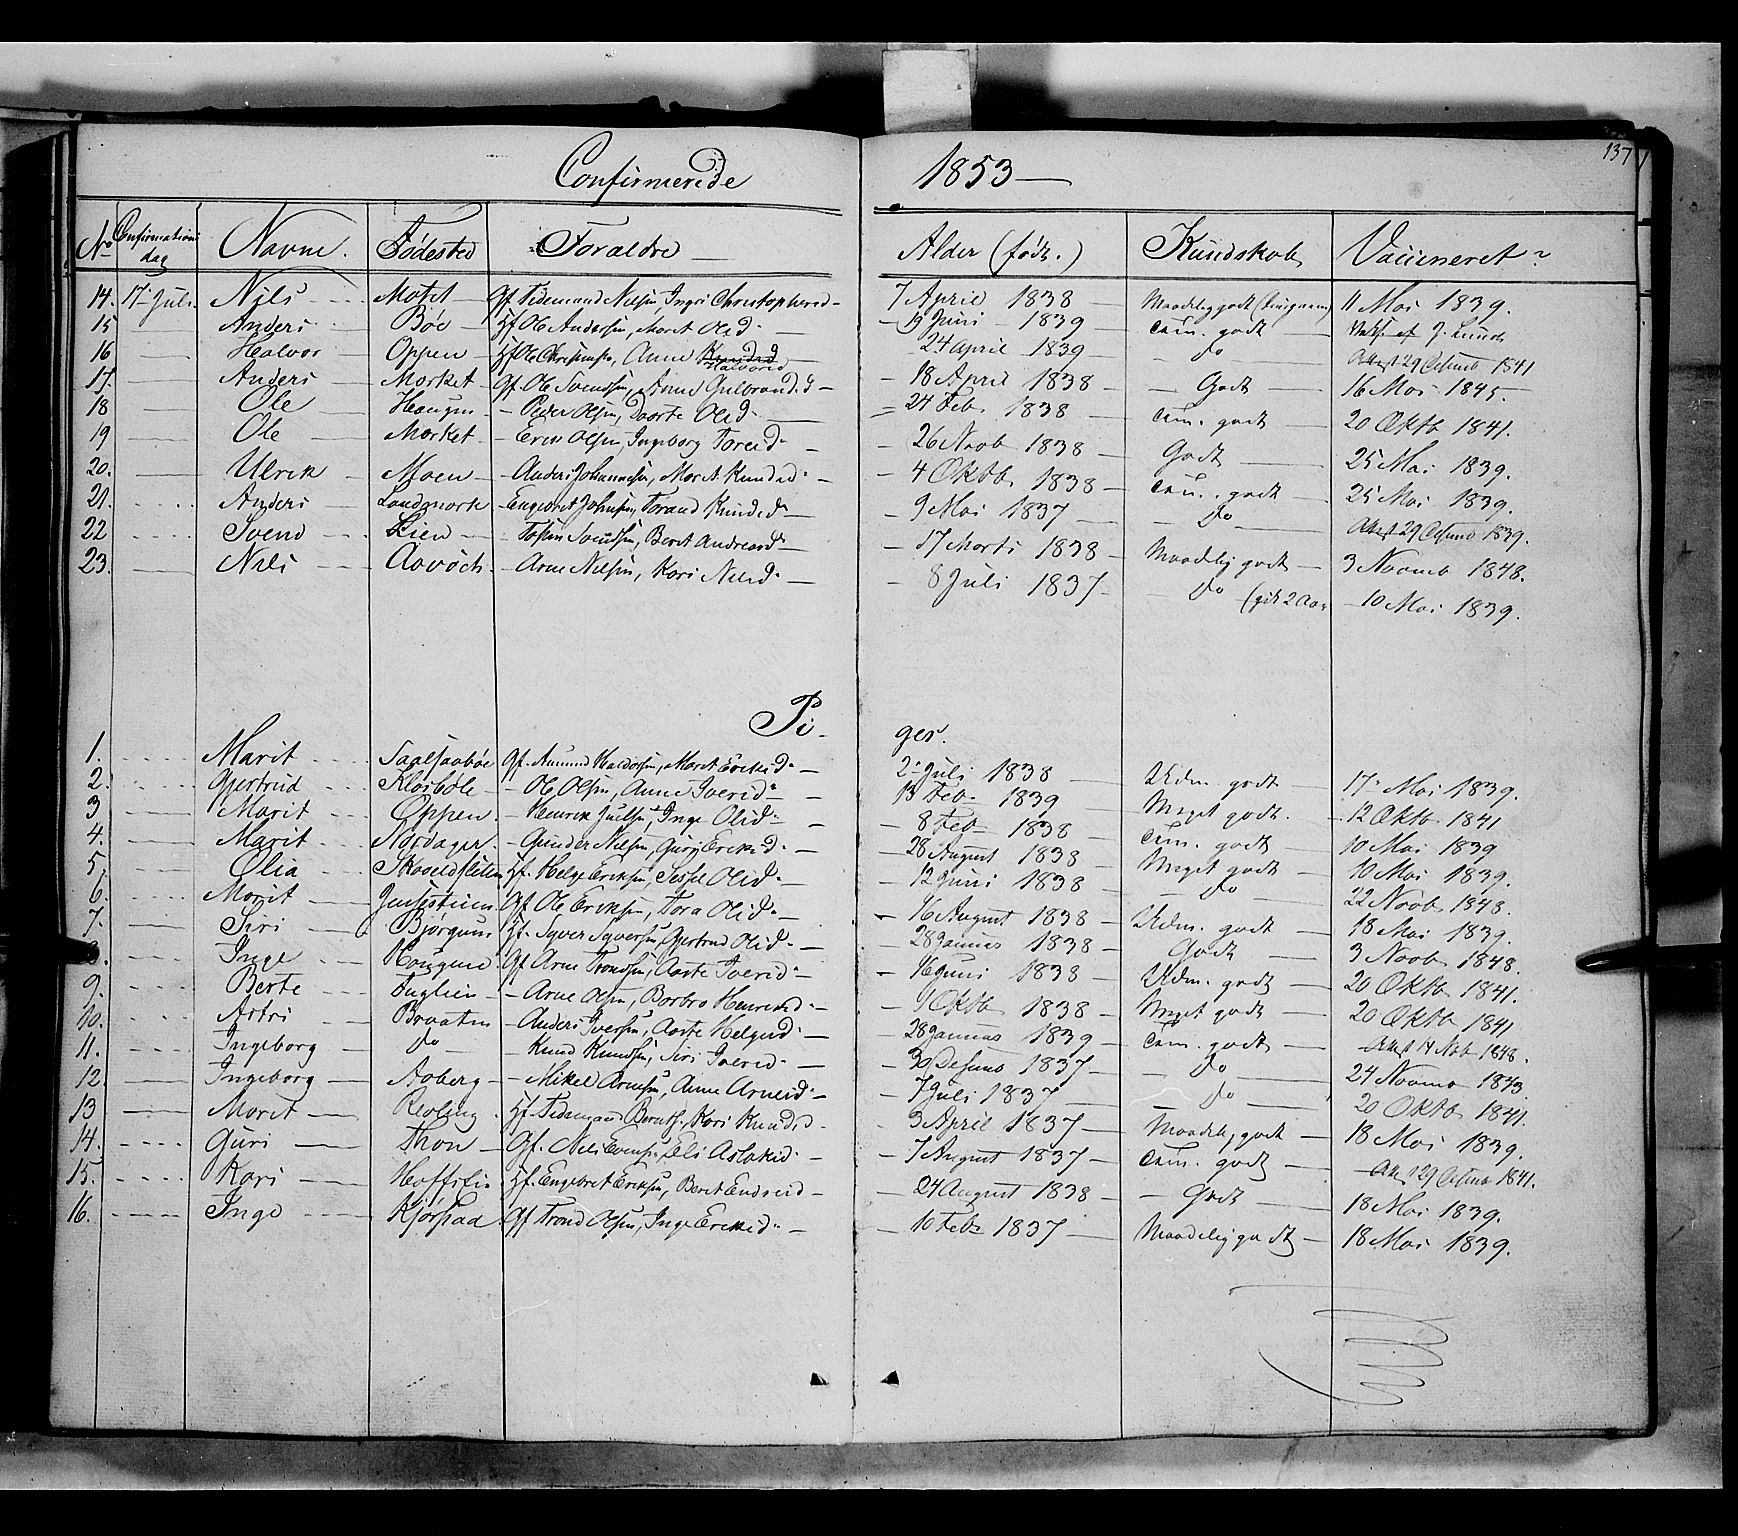 137
Confirmerede 1853
No Confirmations dag Navne. Fødested Forældre Alder (født.) Kundskab Vaccineret?
14. 17 Juli Nils Motet Gf. Tidemand Nilsen, Ingri Christophersd 7 April 1838 Maadelig godt 11 Mai 1839.
15 Anders Bøe Hf Ole Andersen, Marit Olsd 9 Juni 1839 Tem. godt J. Lunds
16 Halvor Oppen Hf Ole Christensen, Anne Halvorsd 24 April 1839 Do Attest 29 1841
17. Anders Morket Gf. Ole Svendsen, Anne Gulbrandsd 18 April 1838 Godt 16 Mai 1845.
18 Ole Haugen Peder Olsen, Dorte Olsd 24 Feb 1838 Tem. godt 20 Oktb 1841.
19 Ole Morket Erik Olsen, Ingeborg Toresd 26 Novb 1838 Godt 25 Mai 1839.
20. Ulrik Moen Anders Johannesen, Marit Knudsd 4 Oktb 1838 Tem. godt 25 Mai 1839.
21. Anders Landmark Engebret Johnsen, Torand Knudsd 9 Mai 1837 Do Attest 29 1839.
22 Svend Lien Tosten Svendsen, Berit Andreasd 17 Marts 1838 Maadelig godt 3 Novmb 1848.
23. Nils Arne Nilsen, Kari Nilsd 8 Juli 1837 Do (gik 2 Aar 10 Mai 1839.
Pi- ger.
1. Marit Gf. Amund Haldorsen, Marit Eriksd 2 Juli 1838 Udm. godt 17 Mai 1839.
2. Gjertrud Kløsbøle Ole Olsen, Anne Iversd 13 Feb 1839 Meget godt. 12 Oktb 1841
3 Marit Oppen Henrik Juelsen, Inge Olsd 8 Feb 1838 Tem. godt 10 Mai 1839
4. Marit Nordager Gunder Nilsen, Guri Eriksd 28 August 1838 Meget godt 10 Mai 1839.
5 Olia Hf. Helge Eriksen, Sissel Olsd 12 Juni 1838 Do 22 Novb 1848.
6. Marit Gf Ole Eriksen, Tora Olsd 16 August 1838 Udm. godt 18 Mai 1839.
7. Siri Hf. Syver Syversen, Gjertrud Olsd 28 Januar 1838 Godt 3 Novb 1848.
8. Inge Haugene Gf Arne Trondsen, Aaste Iversd 16 Juni 1838 Udm. godt 20 Oktb 1841.
9. Berte Fuglien Arne Olsen, Barbro Henriksd 9 Oktb 1838 Meget godt 20 Oktb 1841
10. Astri Braaten Anders Iversen, Aaste Helgesd 28 Januar 1839 Tem. godt Attest 14 Nob. 1848.
11. Ingeborg Do Knud Knudsen, Siri Iversd 30 1837 Do 24 Novmb 1843.
12. Ingeborg Aaberg Mikel Arnesen, Anne Arnesd 7 Juli 1837 Do 20 Oktb 1841.
13 Marit Hf. Tidemand Berntsen, Kari Knudsd 3 April 1837 Maadelig godt 18 Mai 1839.
14. Guri Thon Gf. Nils Evensen, Eli Aslaksd 7 August 1837 Tem. godt Attest 29 1841.
15. Kari Hoffslien Hf. Engebret Eriksen, Berit Endresd 24 August 1838 Godt 18 Mai 1839.
16. Inge Kjørstad Gf Trond Olsen, Inge Eriksd 10 Feb 1837 Maadelig godt 18 Mai 1839.